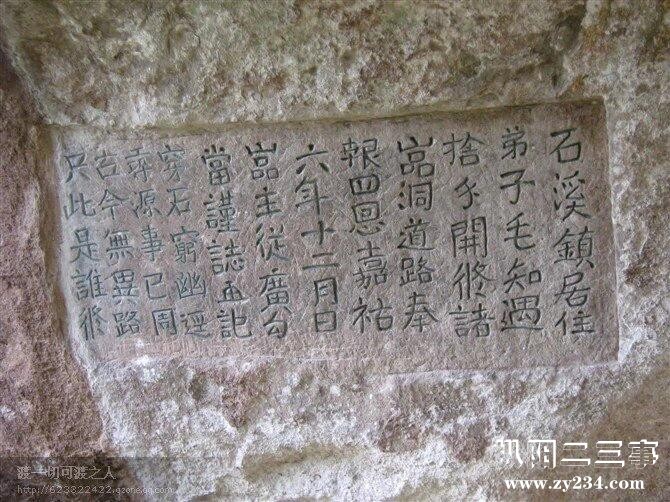 石溪鎮居住
弟子毛知遇
捨手開修諸
嵓洞道路奉
報四恩嘉祐
六年十二月日
嵓主從廣勾
當謹誌並記
穿石窮幽逕
尋源事已周
古今無異路
只此是誰修
渡一切可渡之人
http://623822422.qzone.qq.com
二三事
www.zy234.com